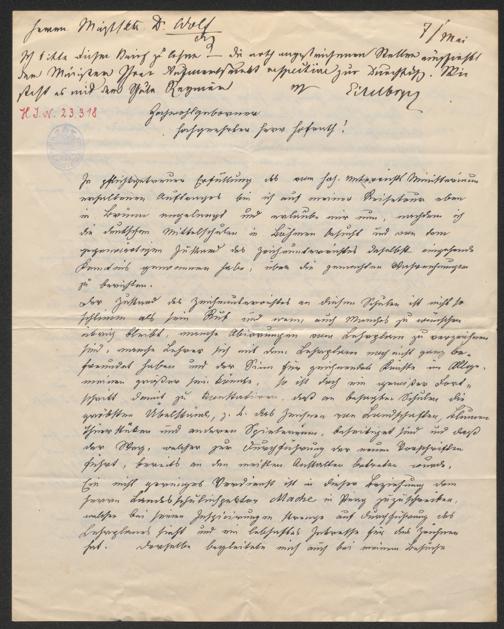 Herrn Ministr. Dr. Wolf
7/Mai
Ich bitte diesen Brief zu lesen – die roth angestrichenen Stellen
den Minister Ihrer Aufmerksamkeit respective zur Durchsicht. Wie
steht es mit dem Regnier Eitelberger
H.I.N. 23.918
Hochwohlgeborner
hochgeehrter Herr Hofrath!
In pflichtgetreuer Erfüllung des vom hoh. Unterrichts Ministerium
erhaltenen Auftrages bin ich auf meiner Reisetour eben
in Brünn angelangt und erlaube mir nun, nachdem ich
die deutschen Mittelschulen in Böhmen besucht und von dem
gegenwärtigen Zustand des Zeichenunterrichtes daselbst eingehende
Kenntnis genommen habe, über die gemachten Wahrnehmungen
zu berichten.
Der Zustand des Zeichenunterrichtes an diesen Schulen ist nicht so
schlimm als sein Ruf und wenn auch Manches zu wünschen
übrig bleibt, manche Abirrungen vom Lehrplane zu verzeichnen
sind, manche Lehrer sich mit dem Lehrplane noch nicht ganz be-
freundet haben und der Sinn für zeichnende Künste im Allge-
meinen größer sein könnte, so ist doch ein gewisser Fort-
schritt damit zu constatieren, daß an besagten Schulen die
gröbsten Übelstände, z. B. das Zeichnen von Landschaften, Blumen
Thierstücken und anderen Spielereien, beseitiget sind und daß
der Weg, welcher zur Durchführung der neuen Vorschriften
führt, bereits an den meisten Anstalten betreten wurde.
Ein nicht geringes Verdienst ist in dieser Beziehung dem
Herrn Landesschulinspektor Mache in Prag zuzuschreiben,
welcher bei seinen Inspizirungen strenge auf Durchführung des
Lehrplanes sieht und ein lebhaftes Interesse für das Zeichnen
hat. Derselbe begleitete mich auch bei meinem Besuche